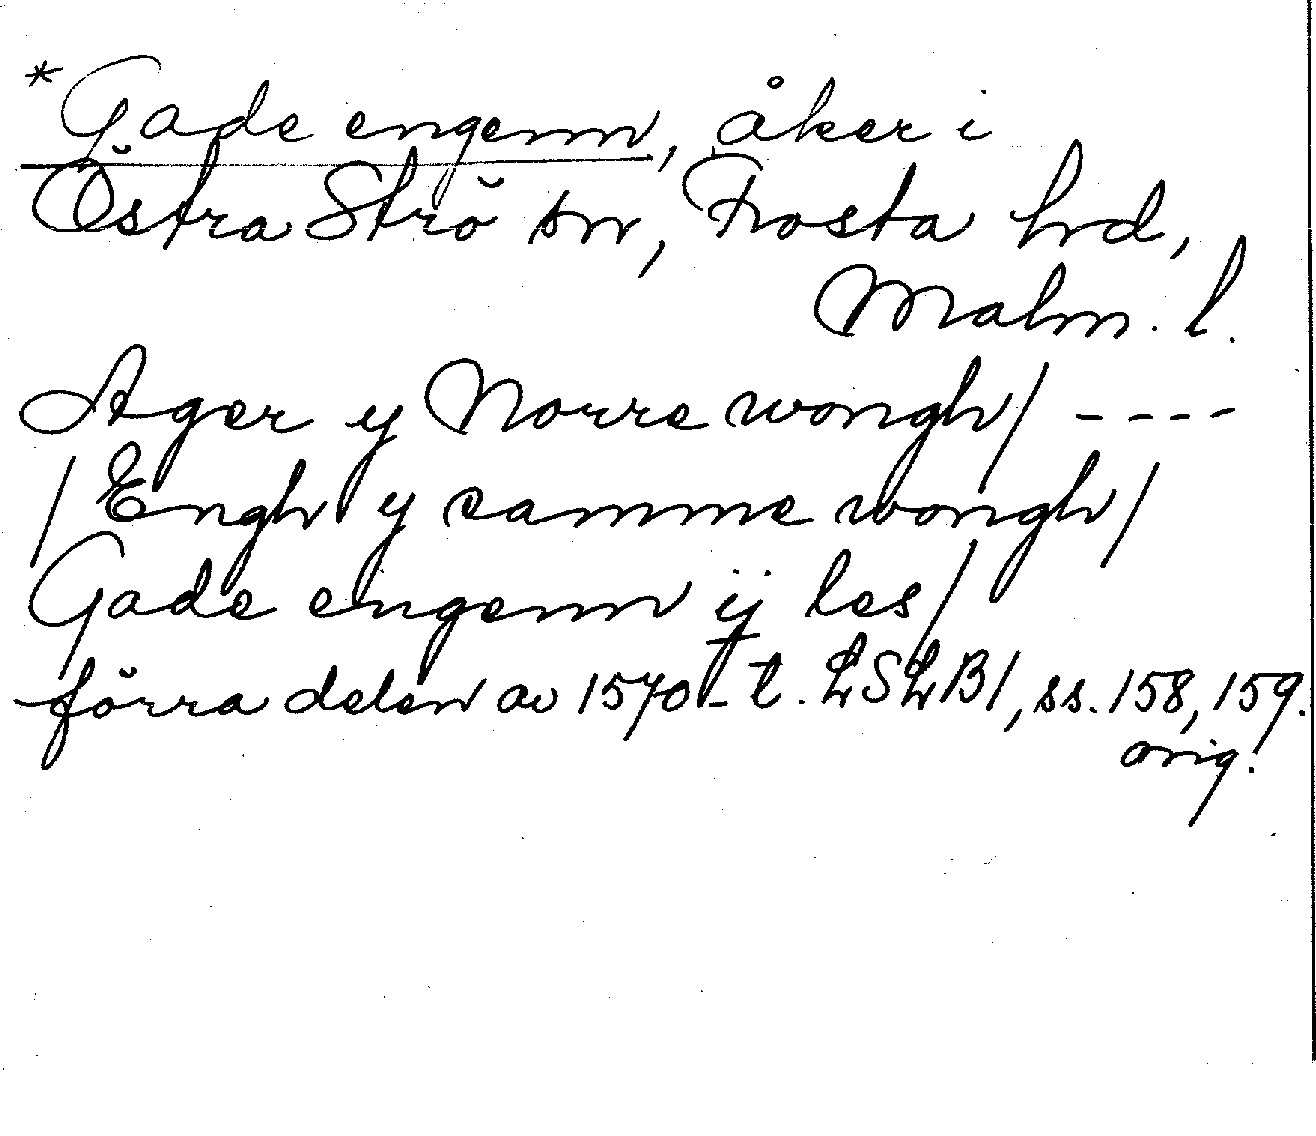 *Gade engenn, åker i
Östra Strö sn, Frosta hrd,
Malm. l.
Ager y Norre wongh/ ----
/Engh y samme wongh/
Gade engenn ÿ les/
förra delen av 1570-t. LSLB1, ss. 158, 159.
orig.